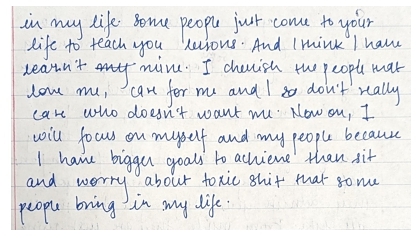 in my life. Some people just come to your
life to teach you lessons. And I think I have
learn't my mine. I cherish the people that
love me, care for me and I so don't really
care who doesn't want me. Now on, I
will focus on myself and my people because
I have bigger goals to achieve than sit
and worry about toxic shit that some
people bring in my life.